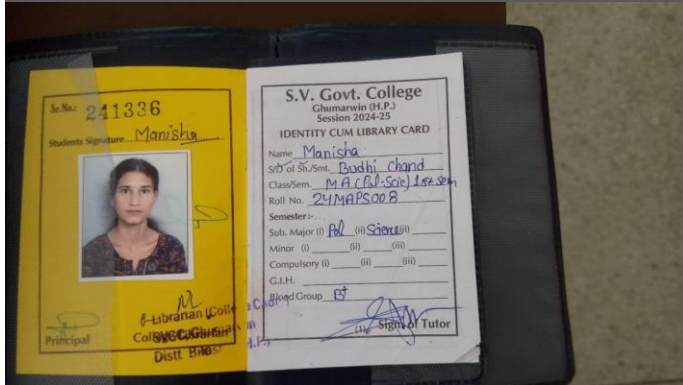 Sr.No.: 241336
Students Signature Manisha
Principal
Librarian
Distt
S.V. Govt. College
Ghumarwin (H.P.)
Session 2024-25
IDENTITY CUM LIBRARY CARD
Name Manisha
S/D of Sh./Smt. Budhi Chand
Class/Sem. M A (Pol-Scie) 1st sem
Roll No. 24MAPS008
Semester:-
Sub. Major (i) Pol (ii) Science (iii)
Minor (i) (ii) (iii)
Compulsory (i) (ii) (iii)
G.I.H.
Blood Group B+
Sign. of Tutor